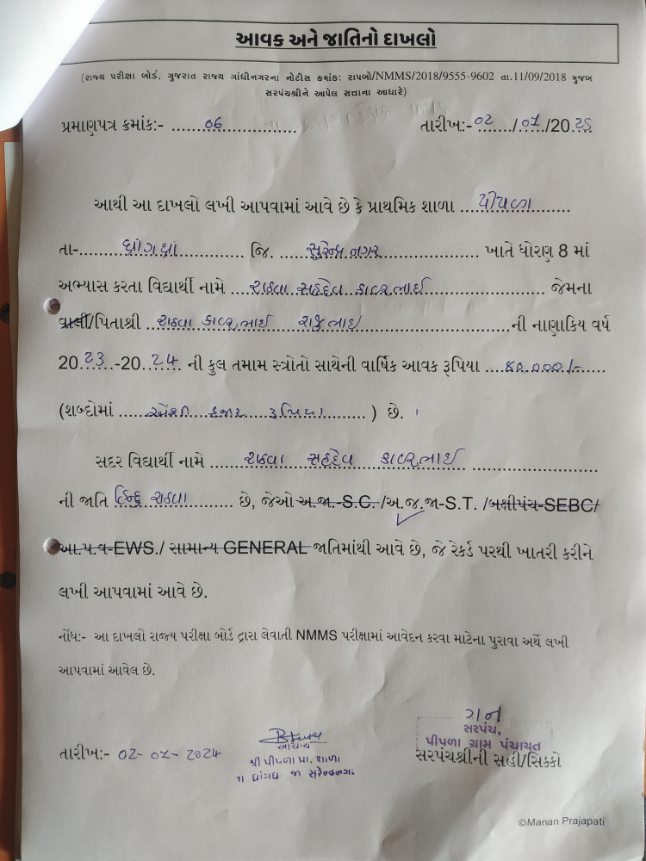 આવક અને જાતિનો દાખલો
(રાજ્ય પરીક્ષા બોર્ડ, ગુજરાત રાજ્ય ગાંધીનગરના નોટીસ ક્રમાંક: રાપબો/NMMS/2018/9555-9602 તા.11/09/2018 મુજબ
સરપંચશ્રીને આપેલ સત્તાના આધારે)
પ્રમાણપત્ર ક્રમાંક:- ...06... તારીખ:- 02/07/2024
આથી આ દાખલો લખી આપવામાં આવે છે કે પ્રાથમિક શાળા ...પીપળા...
તા-...ધ્રાંગધ્રા... જિ. ...સુરેન્દ્રનગર... ખાતે ધોરણ 8 માં
અભ્યાસ કરતા વિદ્યાર્થી નામે ...સહદેવ... જેમના
વાલી/પિતાશ્રી ... ની નાણાકિય વર્ષ
20.23.-20.24. ની કુલ તમામ સ્ત્રોતો સાથેની વાર્ષિક આવક રૂપિયા ...80,000/-...
(શબ્દોમાં ...હજાર રૂપિયા...) છે.
સદર વિદ્યાર્થી નામે ...સહદેવ...
ની જાતિ હિન્દુ ... છે, જેઓ અ.જા.-S.C. /અ.જ.જા-S.T. /બક્ષીપંચ-SEBC/
આ.પ.વ-EWS./ સામાન્ય GENERAL જાતિમાંથી આવે છે, જે રેકર્ડ પરથી ખાતરી કરીને
લખી આપવામાં આવે છે.
નોંધ:- આ દાખલો રાજ્ય પરીક્ષા બોર્ડ દ્વારા લેવાતી NMMS પરીક્ષામાં આવેદન કરવા માટેના પુરાવા અર્થે લખી
આપવામાં આવેલ છે.
તારીખ:- 02-07-2024
આચાર્ય
શ્રી પીપળા પ્રા. શાળા
સરપંચ,
પીપળા ગ્રામ પંચાયત
સરપંચશ્રીની સહી/સિક્કો
©Manan Prajapati